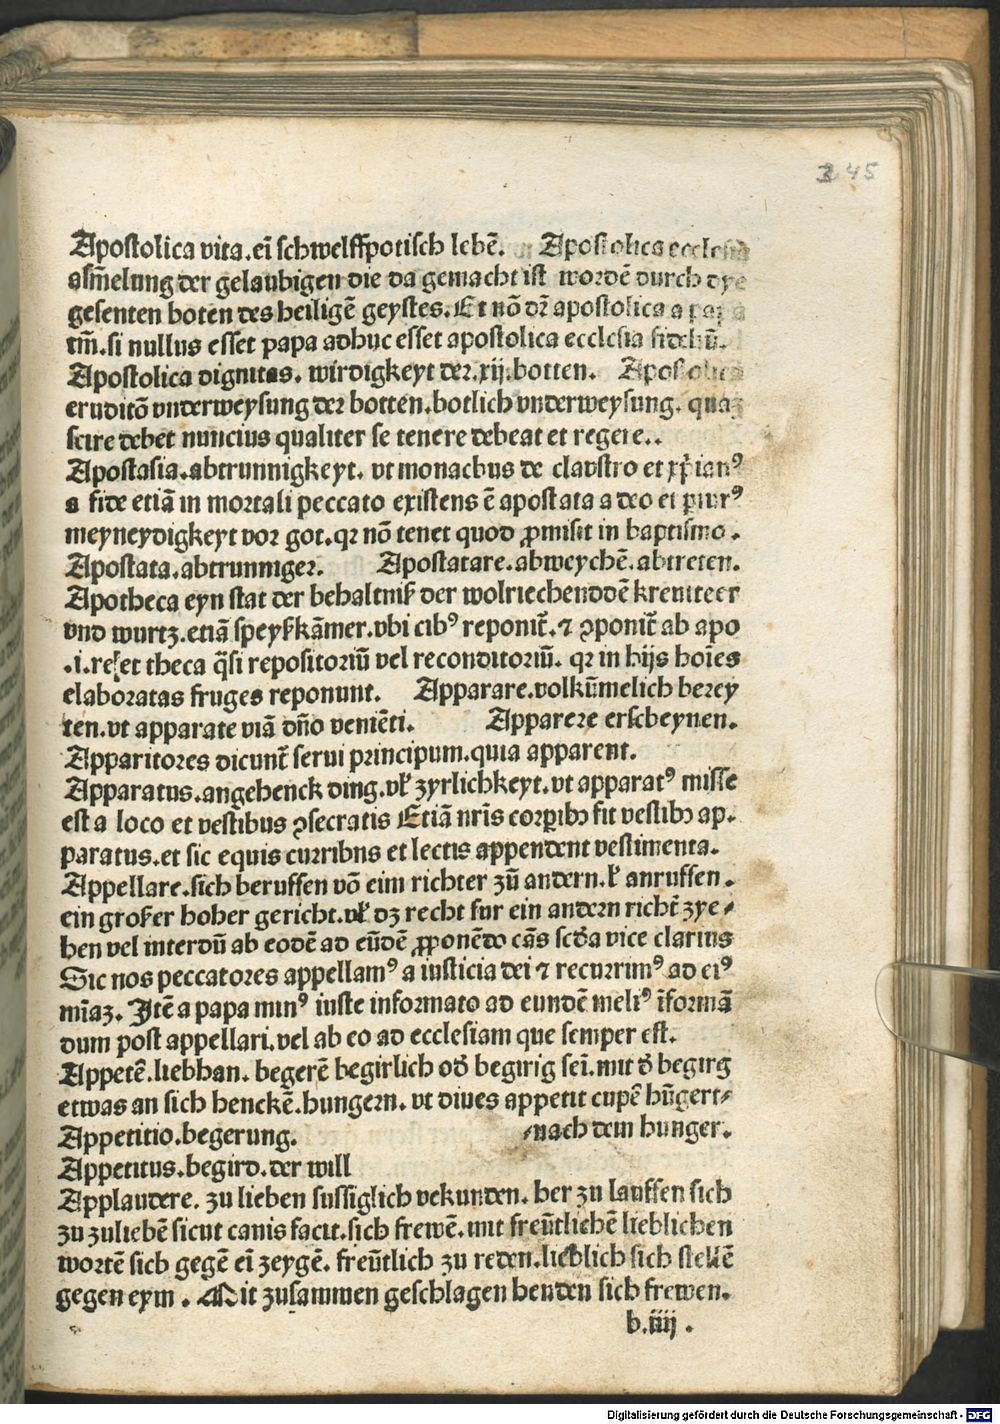 345
Apostolica vita.ei͂ schwelffpotisch lebē. Apostolica ecclesia
asm̄elung der gelaubigen die da gemacht ist wordē durch dye
gesenten boten des heiligē geystes.Et nō dr̄ apostolica a papa
tm̄.si nullus esset papa adhuc esset apostolica ecclesia
Apostolica dignitas. wirdigkeyt der.xij.botten. Apostolica
eruditō vnderweysung der botten.botlich vnderweysung. quaʒ
scire debet nuncius qualiter se tenere debeat et regere..
Apostasia.abtrunnigkeyt. vt monachus de claustro et xp̄ianꝰ
a fide etiā in mortali peccato existens ē apostata a deo et
meyneydigkeyt vor got.qꝛ nō tenet quod ꝓmisit in baptismo.
Apostata.abtrunniger. Apostatare.abweychē.abtreten.
Apotheca eyn stat der behaltniß der wolriechenddē kreutteer
vnd wurtz.etiā speyßkāmer.vbi cibꝰ reponit̄.⁊ ꝯponit̄ ab apo
.i.re et theca q̄si repositoriū vel reconditoriū. qꝛ in hijs hoīes
elaboratas fruges reponunt. Apparare.volkūmelich berey
ten.vt apparate viā dn̄o veniēti. Apparere erscheynen.
Apparitores dicunt̄ serui principum.quia apparent.
Apparatus.angehenck ding.vl̕ zyrlichkeyt.vt apparatꝰ misse
est a loco et vestibus ꝯsecratis Etiā nr̄is corꝑibꝫ fit vestibꝫ ap-
paratus.et sic equis curribns et lectis appendent vestimenta.
Appellare.sich beruffen vō eim richter zū andern.l̕ anruffen.
ein großer hoher gericht.vl̕ dz recht fur ein andern richt̄ zye-
hen vel interdū ab eodē ad eūdē ꝓponēdo cās scd̄a vice clarius
Sic nos peccatores appellamꝰ a iusticia dei ⁊ recurrimꝰ ad eiꝰ
mīaʒ. Itē a papa minꝰ iuste informato ad eundē meliꝰ īformā
dum post appellari.vel ab eo ad ecclesiam que semper est.
Appetē.liebhan. begerē begirlich od̕ begirig sei.mit d̕ begirg
etwas an sich henckē.hungern. vt diues appetit cupē hūgert-
Appetitio.begerung. -nach dem hunger.
Appetitus.begird.der will
Applaudere. zu lieben sussiglich vekunden. her zu lauffen sich
zu zuliebē sicut canis facit.sich frewē.mit freūtlichē lieblichen
wortē sich gegē ei͂ zeygē. freūtlich zu reden.lieblich sich stellē
gegen eym . Mit zusammen geschlagen henden sich frewen.
b.iiij .
Digitalisierung gefördert durch die Deutsche Forschungsgemeinschaft - DFG